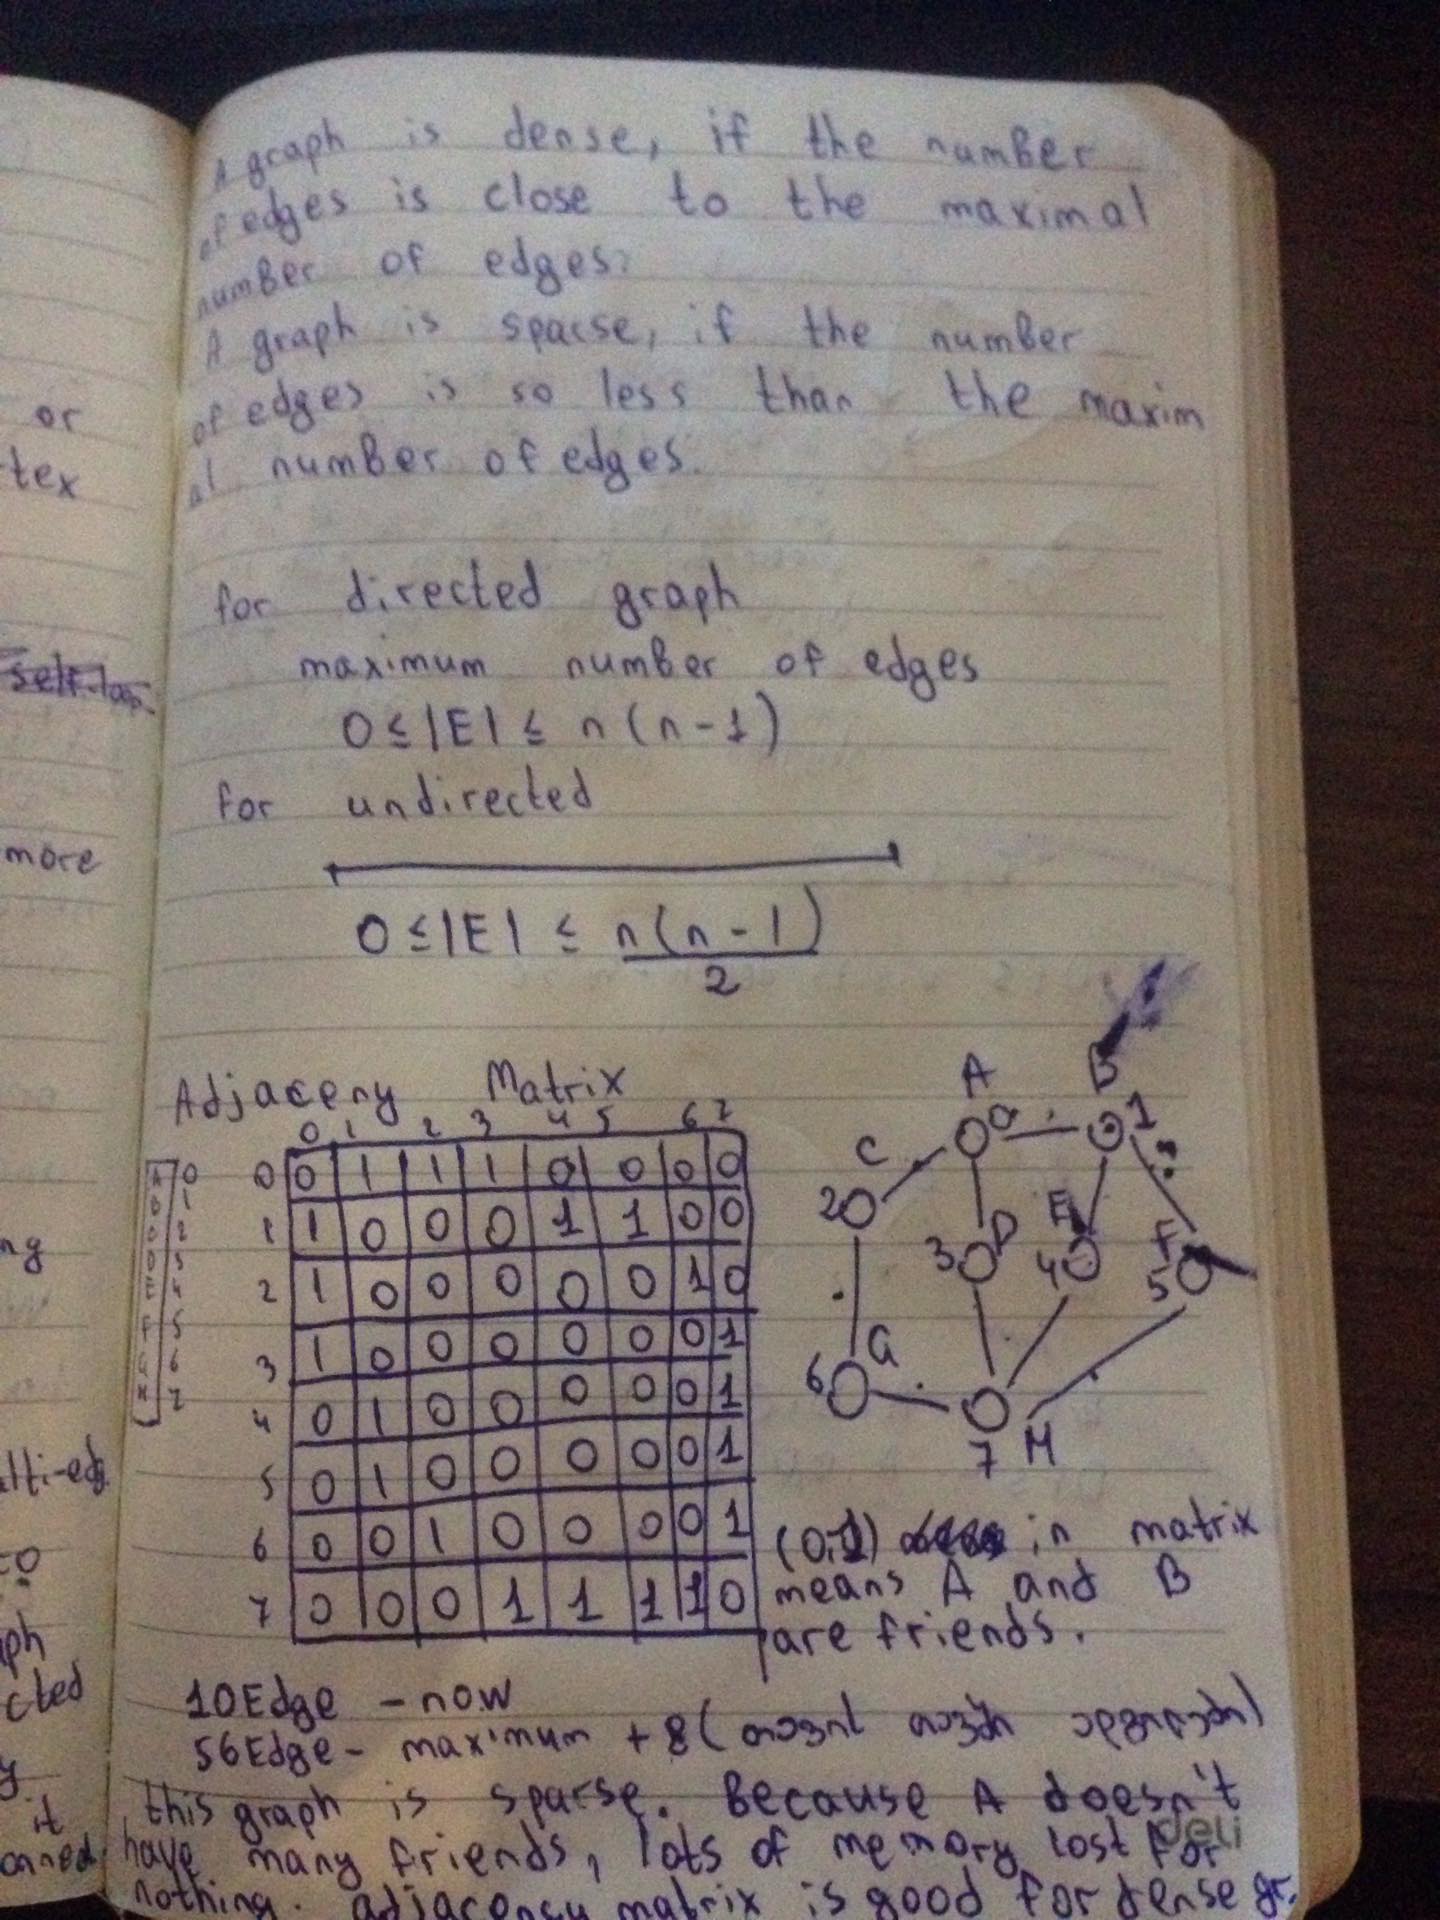 or
tex
self-loop
more
ng
ulti-edg.
aph
cted
y
it
onned
A graph is dense, if the number
of edges is close to the maximal
number of edges.
A graph is sparse, if the number
of edges is so less than the maxim
al number of edges.
for directed graph
maximum number of edges
0 ≤ |E| ≤ n(n-1)
for undirected
0 ≤ |E| ≤ n(n-1)/2
Adjaceny Matrix
0 1 2 3 4 5 6 7
0 0 1 1 1 0 0 0 0
1 1 0 0 0 1 1 0 0
2 1 0 0 0 0 0 1 0
3 1 0 0 0 0 0 0 1
4 0 1 0 0 0 0 0 1
5 0 1 0 0 0 0 0 1
6 0 0 1 0 0 0 0 1
7 0 0 0 1 1 1 1 0
A 0
B 1
C 2
D 3
E 4
F 5
G 6
H 7
A B
0 1
C
2
3 D E 4 F
5
6 G
7 H
(0,1) in matrix
means A and B
are friends.
10Edge - now
56Edge - maximum + 8 (
this graph is sparse. Because A doesn't
have many friends, lots of memory lost for
nothing. adjacency matrix is good for dense gr.
deli